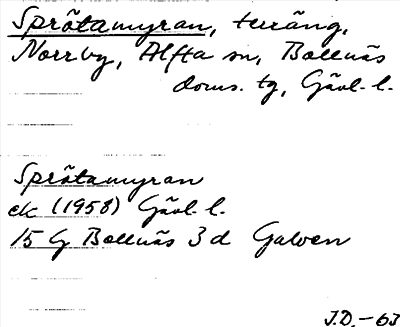 Sprötamyran, terräng,
Norrby, Alfta sn, Bollnäs
doms. tg, Gävl. l.
Sprötamyran
ek (1958) Gävl. l.
15 G Bollnäs 3 d Galven
J.D. -63